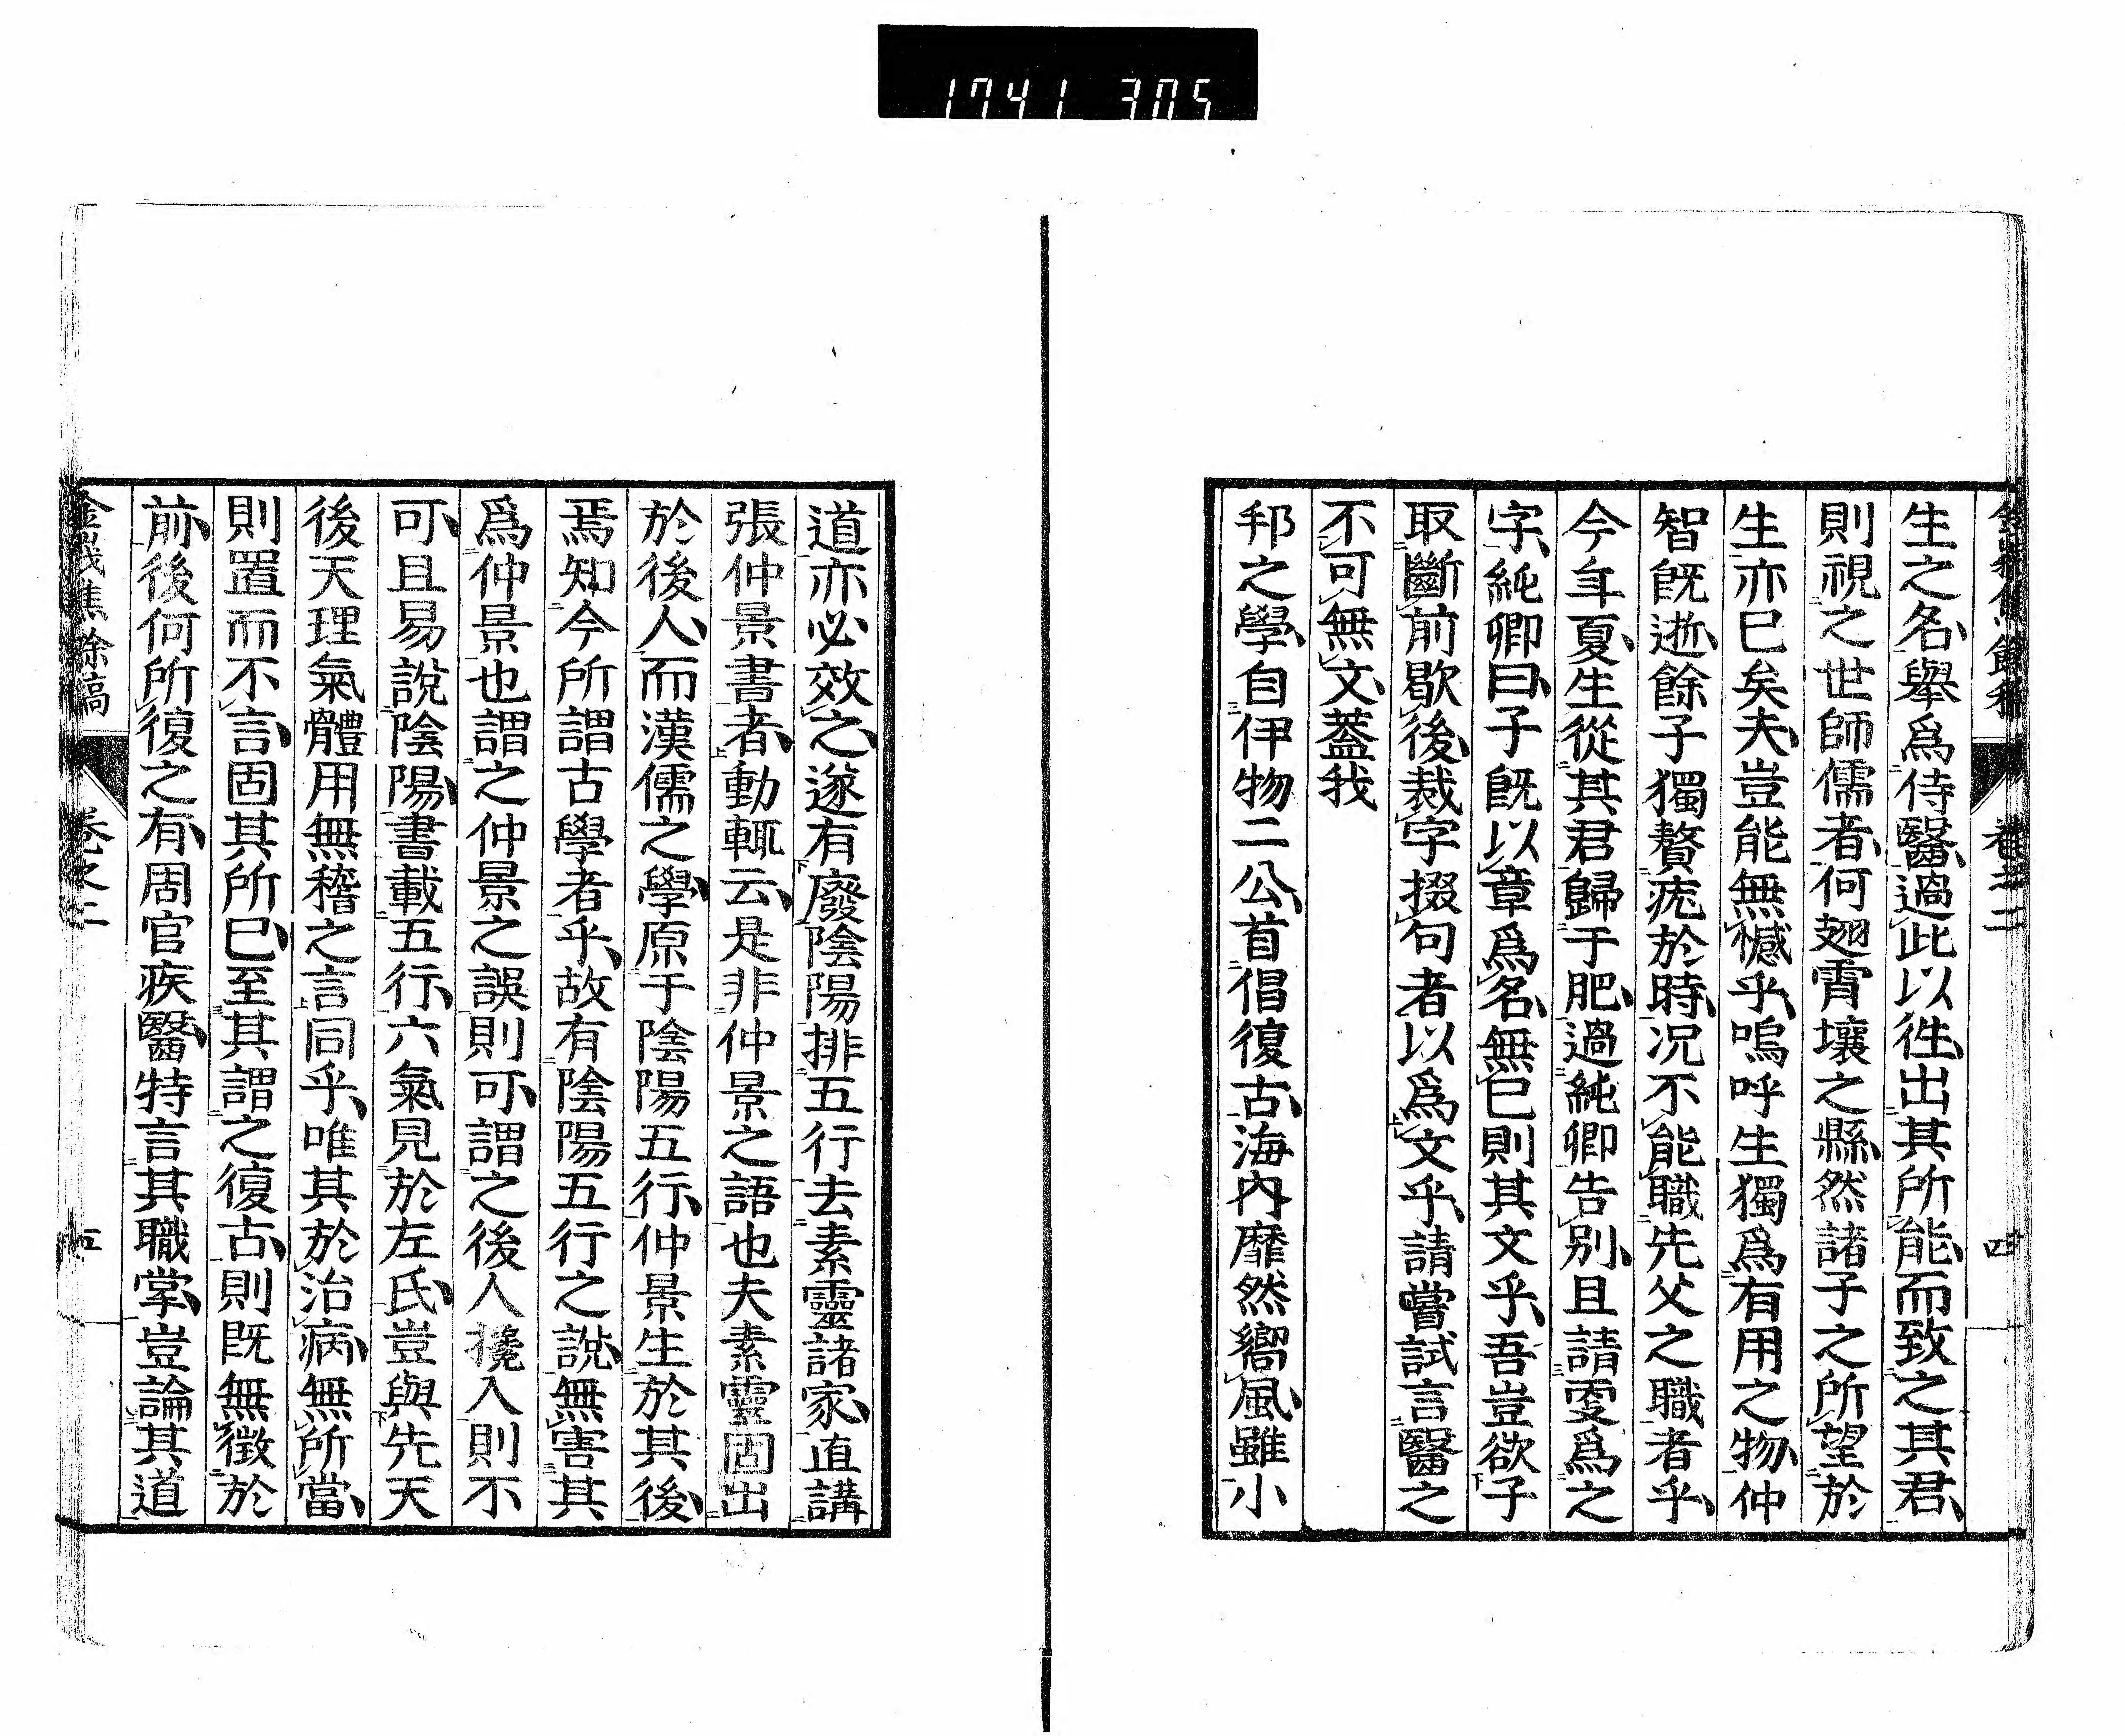 1741 305
生之名、擧爲侍醫、過此以徃、出其所能、而致之其君、
則視之世師儒者、何翅霄壤之縣、然諸子之所望於
生亦已矣夫、豈能無憾乎、嗚呼生獨爲有用之物、仲
智既逝、餘子獨贅疣於時、況不能職先父之職者乎、
今年夏、生從其君歸于肥、過純卿告別、且請更爲之
字、純卿曰、子既以章爲名、無已則其文乎、吾豈欲子
取斷前歇後、裁字掇句者以爲文乎、請嘗試言醫之
不可無文、蓋我
邦之學、自伊物二公、首倡復古、海内靡然嚮風、雖小
卷之二
四
道亦必效之、遂有廢陰陽排五行去素靈諸家、直講
張仲景書者、動輒云、是非仲景之語也夫素靈固出
於後人、而漢儒之學、原于陰陽五行、仲景生於其後、
焉知今所謂古學者乎、故有陰陽五行之說、無害其
爲仲景也謂之仲景之誤則可、謂之後人攙入則不
可、且易說陰陽、書載五行、六氣見於左氏、豈與先天
後天理氣體用無稽之言同乎、唯其於治病、無所當、
則置而不言、固其所已、至其謂之復古、則既無徵於
前、後何所復之有、周官疾醫、特言其職掌、豈論其道
金峩焦餘稿
卷之二
五